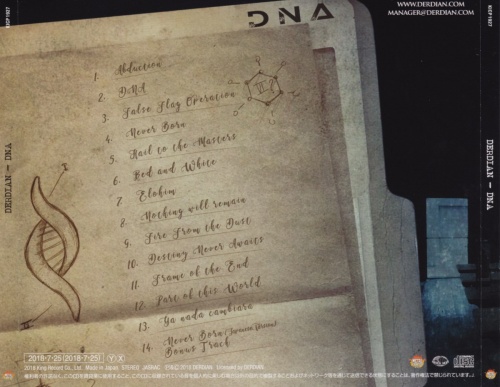 DNA
WWW.DERDIAN.COM
MANAGER@DERDIAN.COM
KICP 1927
KICP 1927
DERDIAN – DNA
DERDIAN – DNA
1. Abduction
2. DNA
3. False Flag Operation
4. Never Born
5. Hail to the Masters
6. Red and White
7. Elohim
8. Nothing will remain
9. Fire From the Dust
10. Destiny Never Awaits
11. Frame of the End
12. Part of this World
13. Ya nada cambiara
14. Never Born (Japanese Version)
Bonus Track
I
II
VI
2018-7-25 (2018-7-25) Y X
2018 King Record Co., Ltd. Made in Japan STEREO JASRAC ℗&© 2018 DERDIAN Licensed by DERDIAN